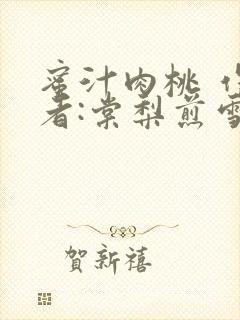 蜜汁肉桃 作
者:棠梨煎雪
賀新禧